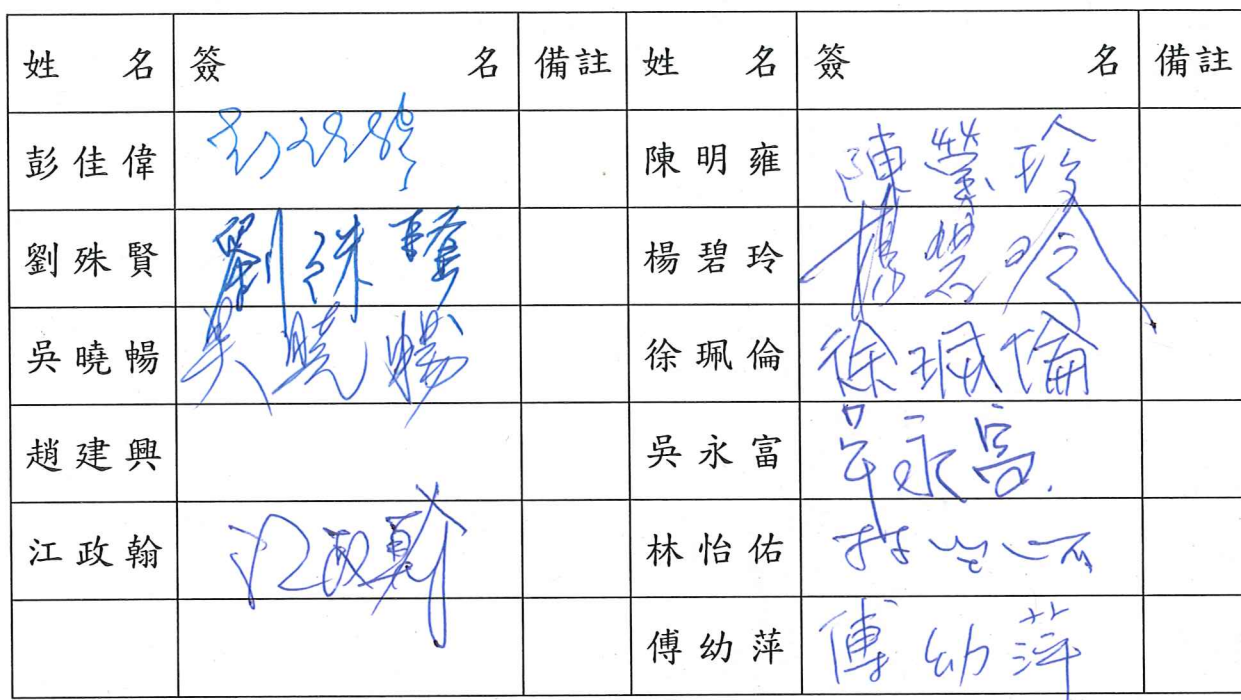 姓 名 簽 名 備註 姓 名 簽 名 備註
彭佳偉 陳明雍 陳瑩玲
劉殊賢 劉殊賢 楊碧玲 楊碧玲
吳曉暢 吳曉暢 徐珮倫 徐珮倫
趙建興 吳永富 吳永富
江政翰 江政翰 林怡佑 林怡佑
傅幼萍 傅幼萍